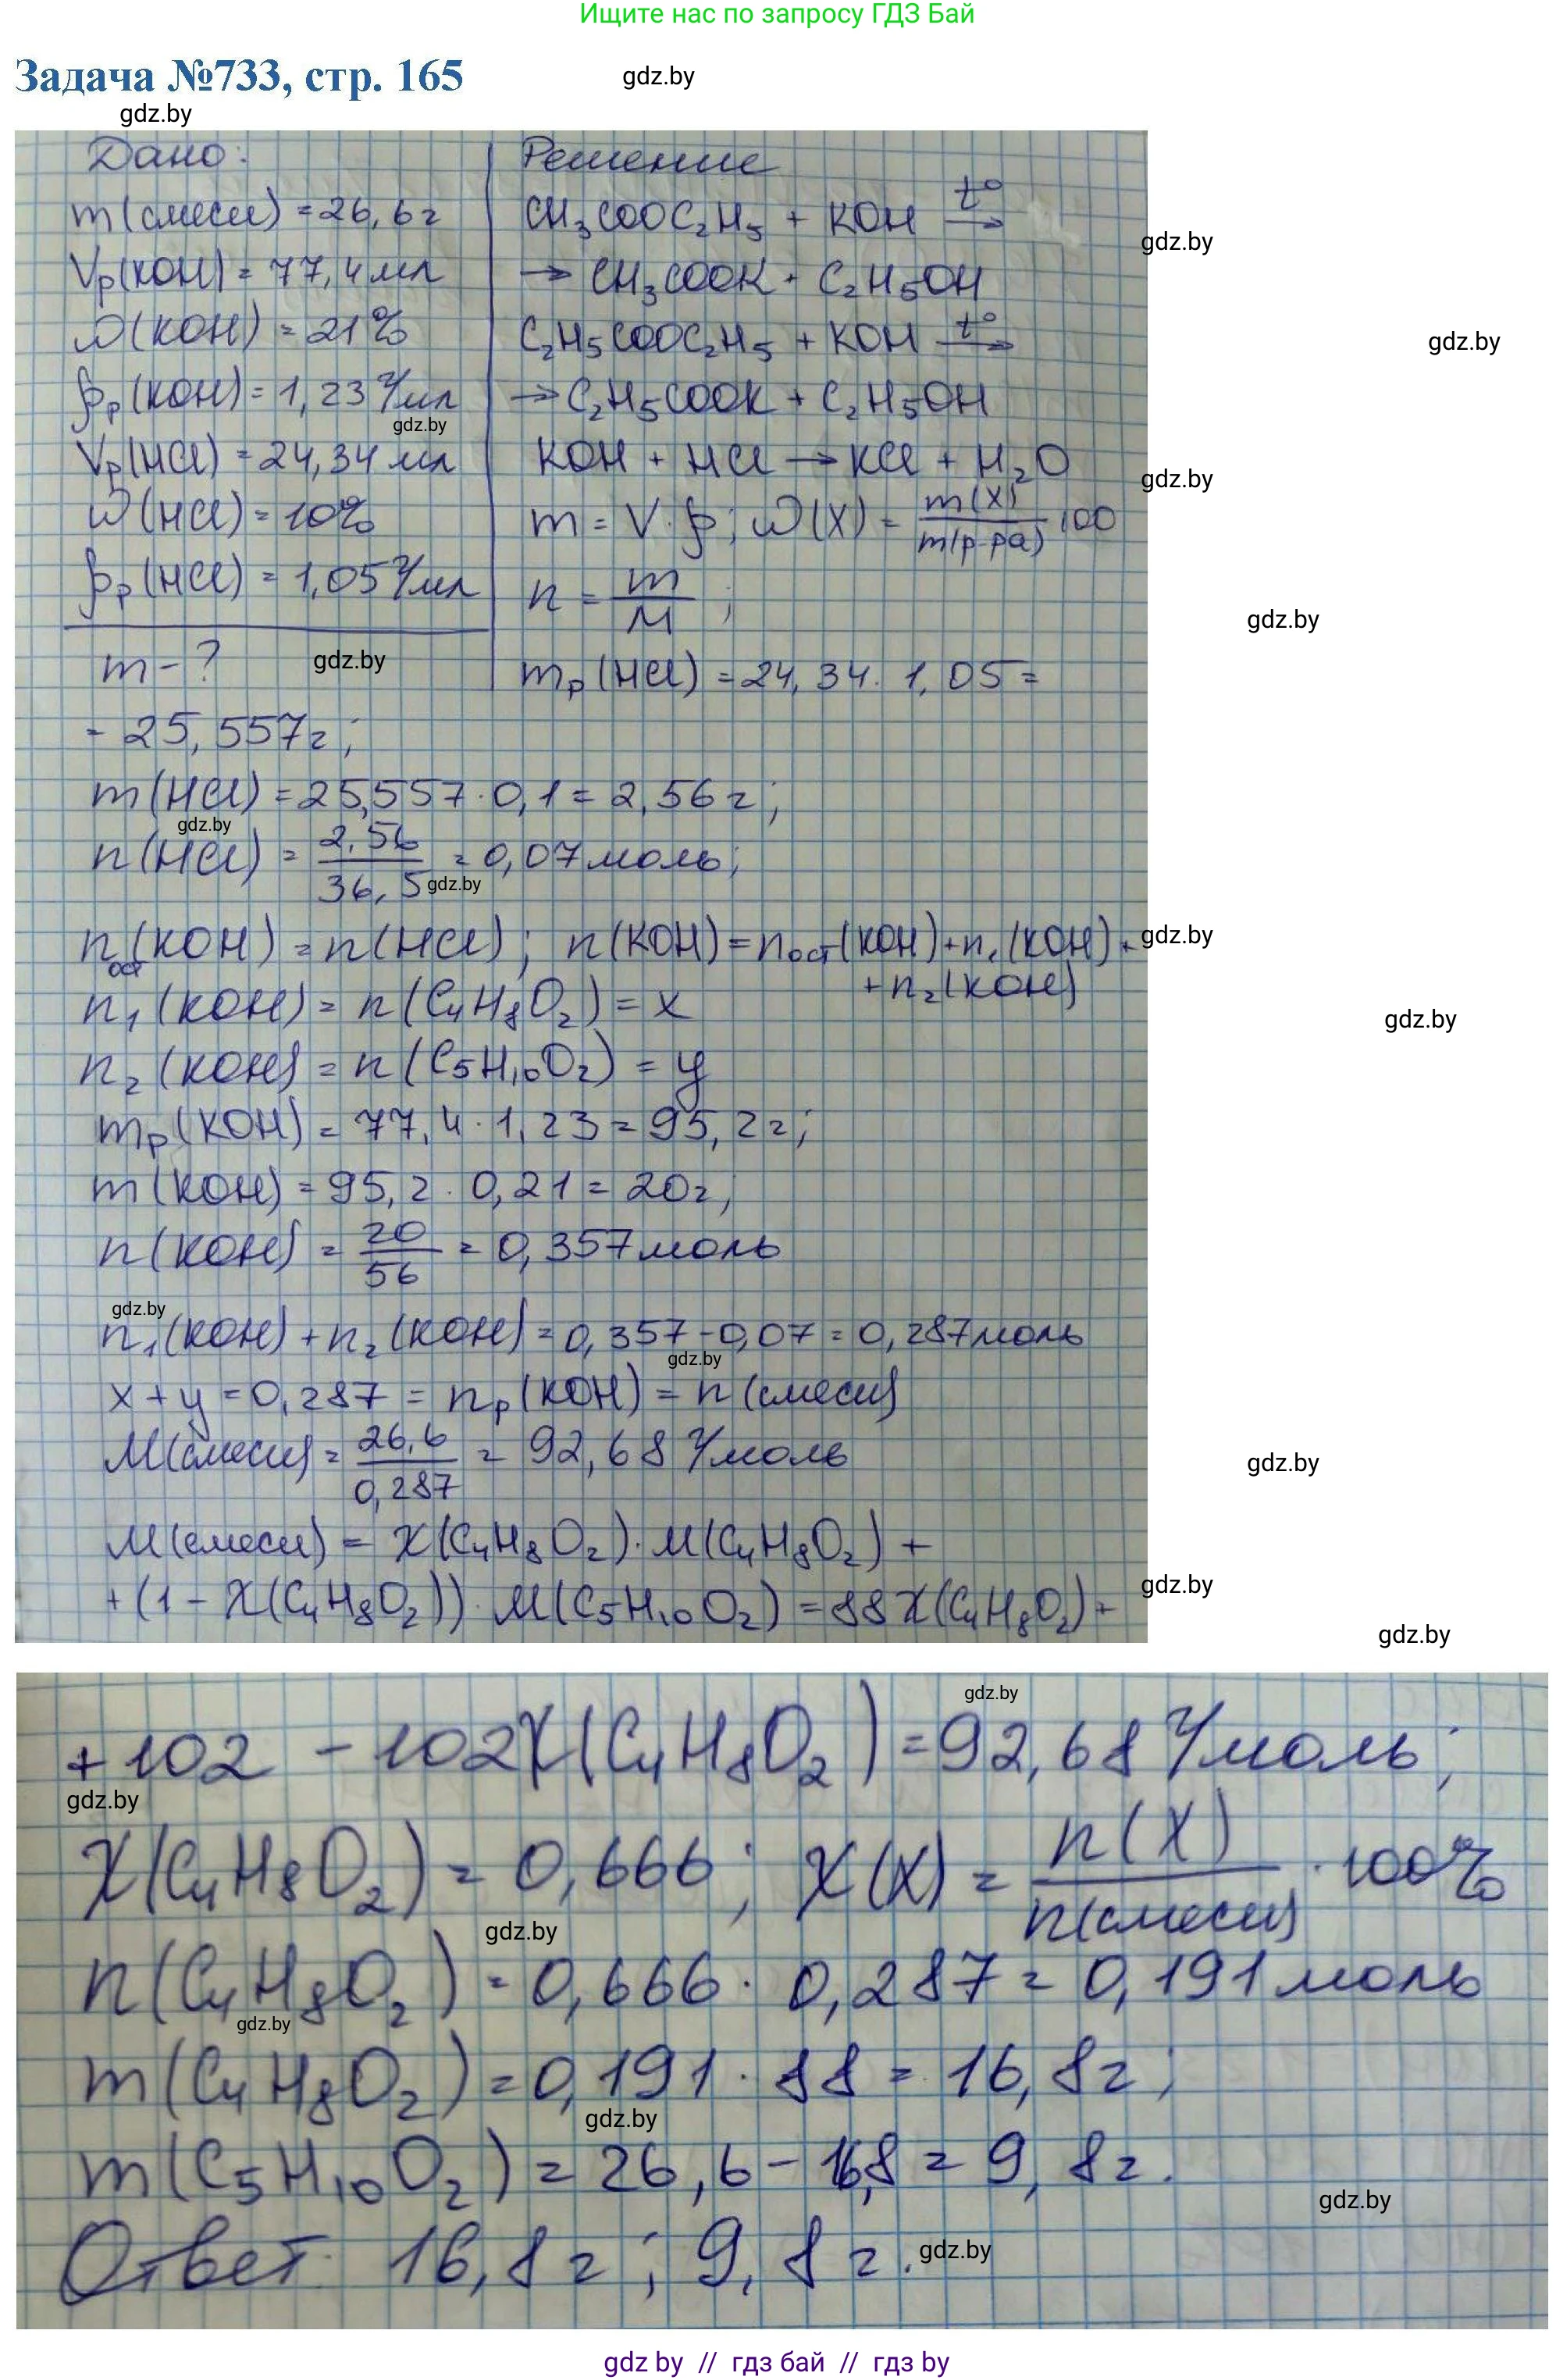 Ищите нас по запросу ГДЗ Бай
Задача №733, стр. 165
gdz.by
gdz.by
Дано:
m(смеси) = 26,6г
Vр(KOH) = 77,4мл
ω(KOH) = 21%
ρр(KOH) = 1,23 г/мл
gdz.by
Vр(HCl) = 24,34 мл
ω(HCl) = 10%
ρр(HCl) = 1,05 г/мл
m - ?
gdz.by
Решение
CH₃COOC₂H₅ + KOH t° →
gdz.by
→ CH₃COOK + C₂H₅OH
C₂H₅COOC₂H₅ + KOH t° →
gdz.by
→ C₂H₅COOK + C₂H₅OH
KOH + HCl → KCl + H₂O
gdz.by
m = V · ρ; ω(X) = m(X) / m(р-ра) · 100
n = m / M ;
gdz.by
mр(HCl) = 24,34 · 1,05 =
= 25,557г;
m(HCl) = 25,557 · 0,1 = 2,56г;
gdz.by
n(HCl) = 2,56 / 36,5 = 0,07моль;
gdz.by
nост(KOH) = n(HCl); n(KOH) = nост(KOH) + n₁(KOH) +
gdz.by
+ n₂(KOH)
n₁(KOH) = n(C₄H₈O₂) = x
gdz.by
n₂(KOH) = n(C₅H₁₀O₂) = y
mр(KOH) = 77,4 · 1,23 = 95,2г;
m(KOH) = 95,2 · 0,21 = 20г;
n(KOH) = 20 / 56 = 0,357моль
gdz.by
n₁(KOH) + n₂(KOH) = 0,357 - 0,07 = 0,287моль
gdz.by
x + y = 0,287 = nр(KOH) = n(смеси)
M(смеси) = 26,6 / 0,287 = 92,68 г/моль
gdz.by
M(смеси) = X(C₄H₈O₂) · M(C₄H₈O₂) +
gdz.by
+ (1 - X(C₄H₈O₂)) · M(C₅H₁₀O₂) = 88X(C₄H₈O₂) +
gdz.by
gdz.by
+ 102 - 102X(C₄H₈O₂) = 92,68 г/моль;
gdz.by
X(C₄H₈O₂) = 0,666; X(X) = n(X) / n(смеси) · 100%
gdz.by
n(C₄H₈O₂) = 0,666 · 0,287 = 0,191моль
gdz.by
m(C₄H₈O₂) = 0,191 · 88 = 16,8г;
gdz.by
m(C₅H₁₀O₂) = 26,6 - 16,8 = 9,8г.
gdz.by
Ответ: 16,8г; 9,8г.
gdz.by
gdz by // гдз бай // гдз by